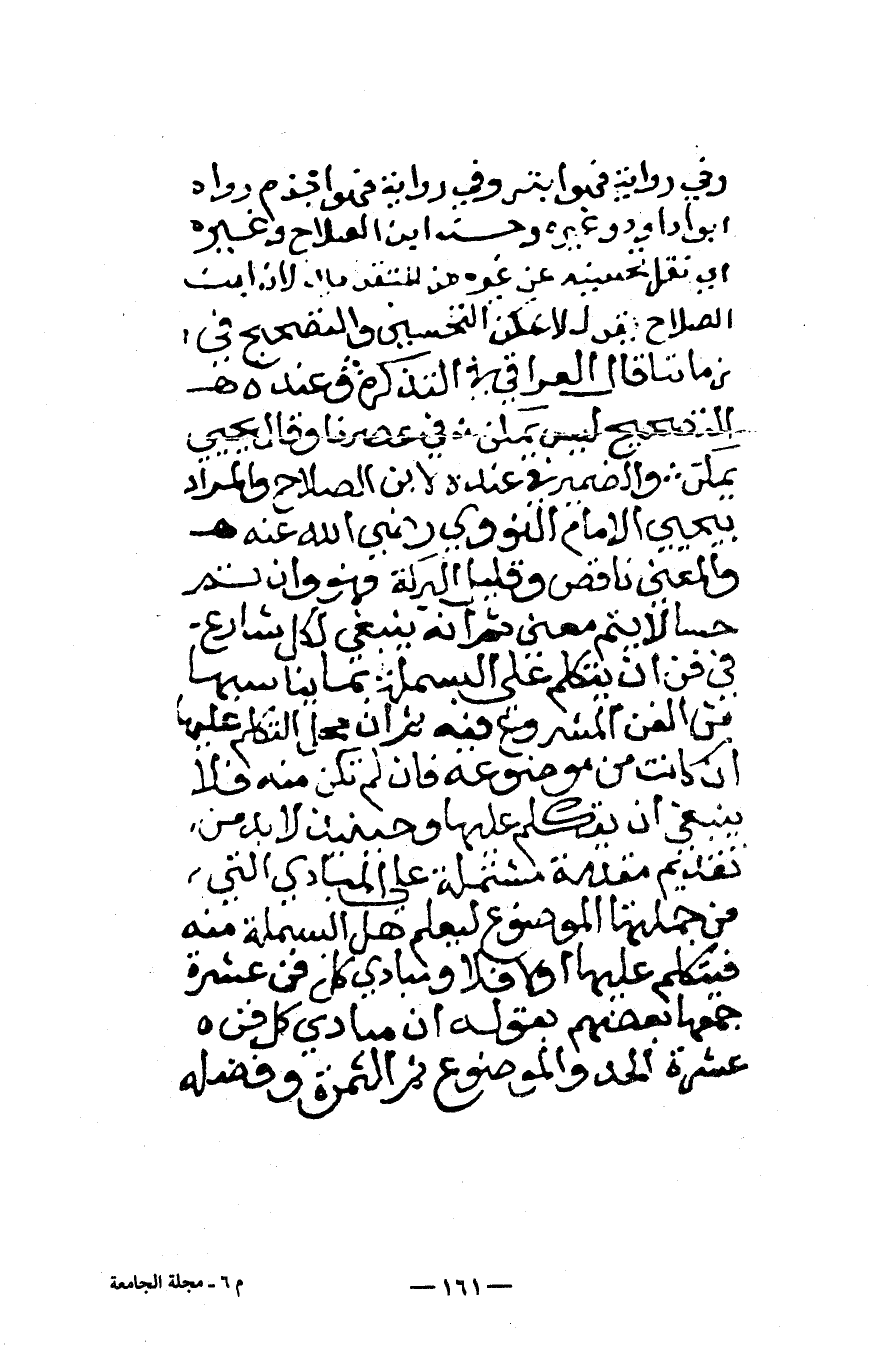 وفي رواية فهو ابتر وفي رواية فهو اجذم رواه
ابو داود وغيره وحسنه ابن الصلاح وغيره
اي نقل تحسينه عن غيره من المتقدمين لان ابن
الصلاح يقول لا يمكن التحسين والتصحيح في
زماننا قال العراقي في التذكرة وعنده
التصحيح ليس يمكن في عصرنا وقال يحيى
يمكن والضمير في عنده لابن الصلاح والمراد
بيحيى الامام النووي رضي الله عنه
والمعنى ناقص وقليل البركة فهو وان تم
حسا لا يتم معنى ثم انه ينبغي لكل شارع
في فن ان يتكلم على البسملة بما يناسبها
من الفن المشروع فيه ثم ان محل التكلم عليها
ان كانت من موضوعه فان لم تكن منه فلا
ينبغي ان يتكلم عليها وحينئذ لا بد من
تقديم مقدمة مشتملة على المبادي التي
من جملتها الموضوع ليعلم هل البسملة منه
فيتكلم عليها او لا فلا ومبادي كل فن عشرة
جمعها بعضهم بقوله ان مبادي كل فن ه
عشرة الحد والموضوع ثم الثمرة وفضله
م ٦ ـ مجلة الجامعة
— ١٦١ —